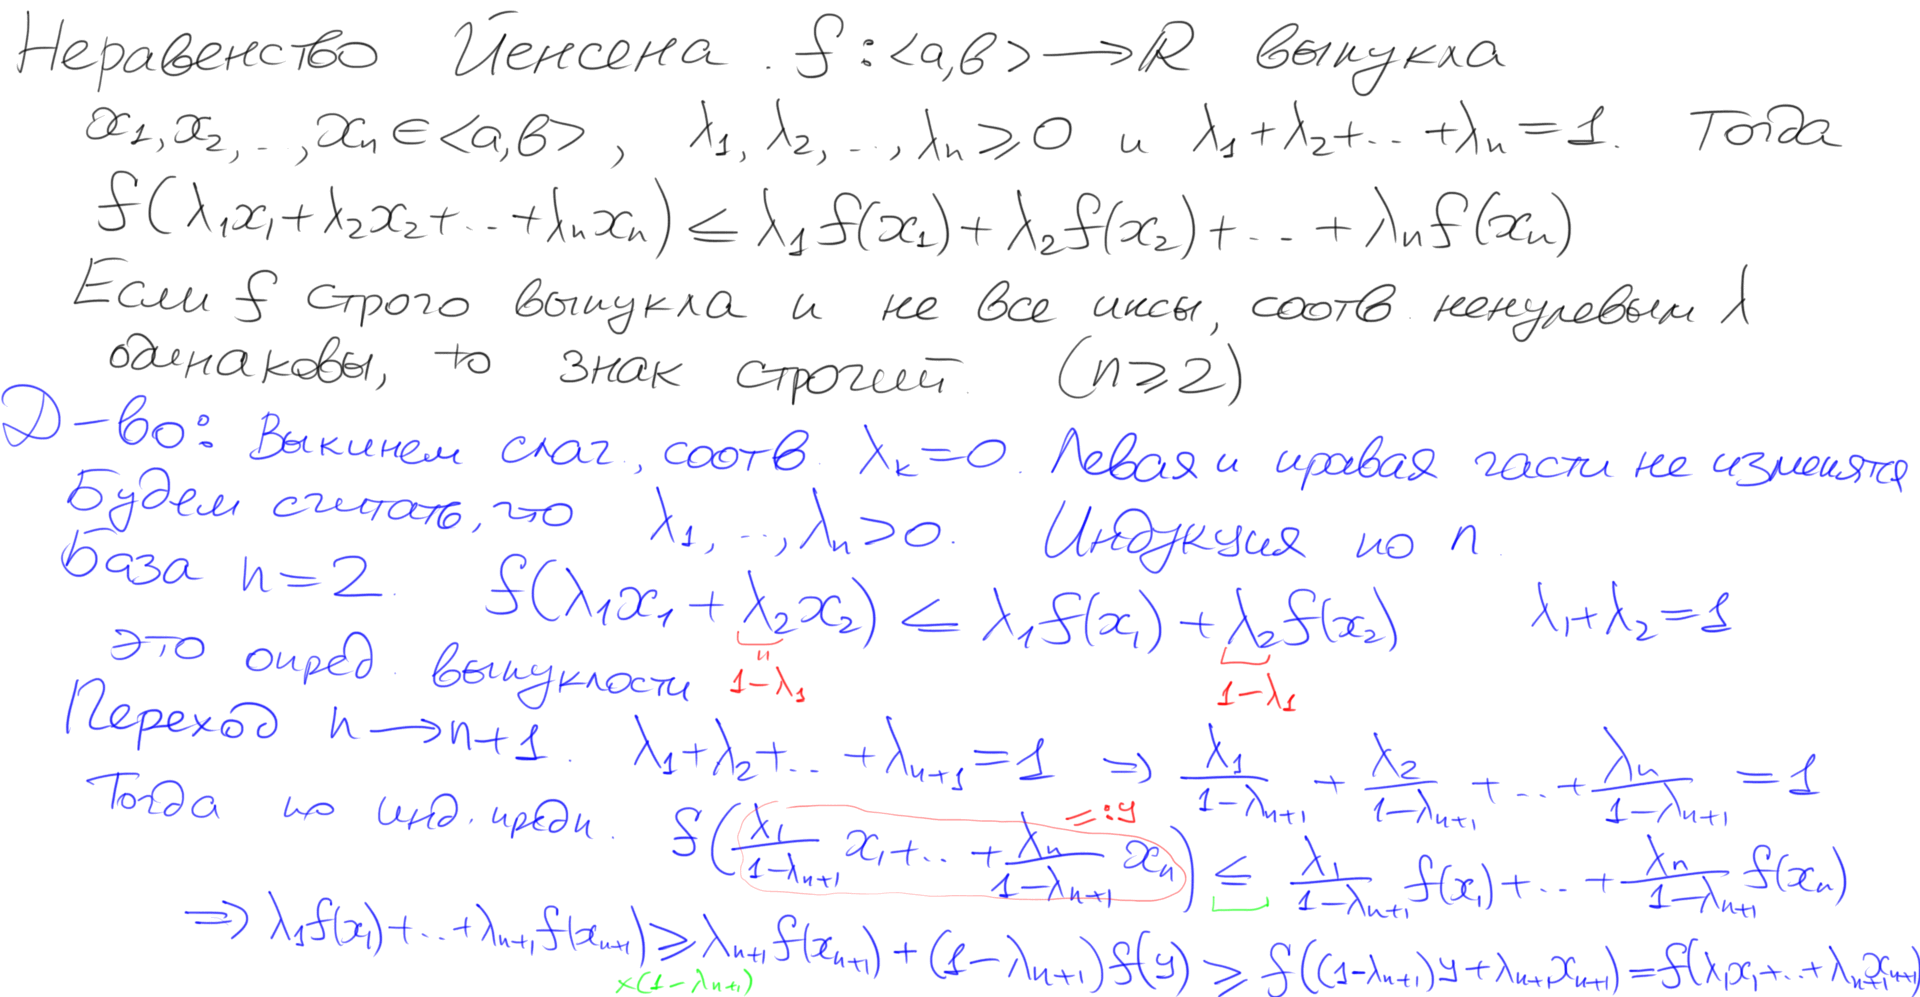 Неравенство Йенсена. f : <a,b> → ℝ выпукла
x₁, x₂, .., xₙ ∈ <a,b>, λ₁, λ₂, .., λₙ ⩾ 0 и λ₁ + λ₂ + .. + λₙ = 1. Тогда
f(λ₁x₁ + λ₂x₂ + .. + λₙxₙ) ≤ λ₁f(x₁) + λ₂f(x₂) + .. + λₙf(xₙ)
Если f строго выпукла и не все иксы, соотв. ненулевым λ
одинаковы, то знак строгий. (n ⩾ 2)
Д-во: Выкинем слаг., соотв. λₖ = 0. Левая и правая части не изменятся
Будем считать, что λ₁, .., λₙ > 0. Индукция по n.
База n = 2. f(λ₁x₁ + λ₂x₂) ≤ λ₁f(x₁) + λ₂f(x₂) λ₁ + λ₂ = 1
это опред. выпуклости
" 1-λ₁ 1-λ₁
Переход n → n+1. λ₁ + λ₂ + .. + λₙ₊₁ = 1 ⇒ λ₁/(1-λₙ₊₁) + λ₂/(1-λₙ₊₁) + .. + λₙ/(1-λₙ₊₁) = 1
Тогда по инд. предп. f(λ₁/(1-λₙ₊₁) x₁ + .. + λₙ/(1-λₙ₊₁) xₙ) ≤ λ₁/(1-λₙ₊₁) f(x₁) + .. + λₙ/(1-λₙ₊₁) f(xₙ)
=: y
⇒ λ₁f(x₁) + .. + λₙ₊₁f(xₙ₊₁) ⩾ λₙ₊₁f(xₙ₊₁) + (1-λₙ₊₁)f(y) ⩾ f((1-λₙ₊₁)y + λₙ₊₁xₙ₊₁) = f(λ₁x₁ + .. + λₙ₊₁xₙ₊₁)
×(1-λₙ₊₁)